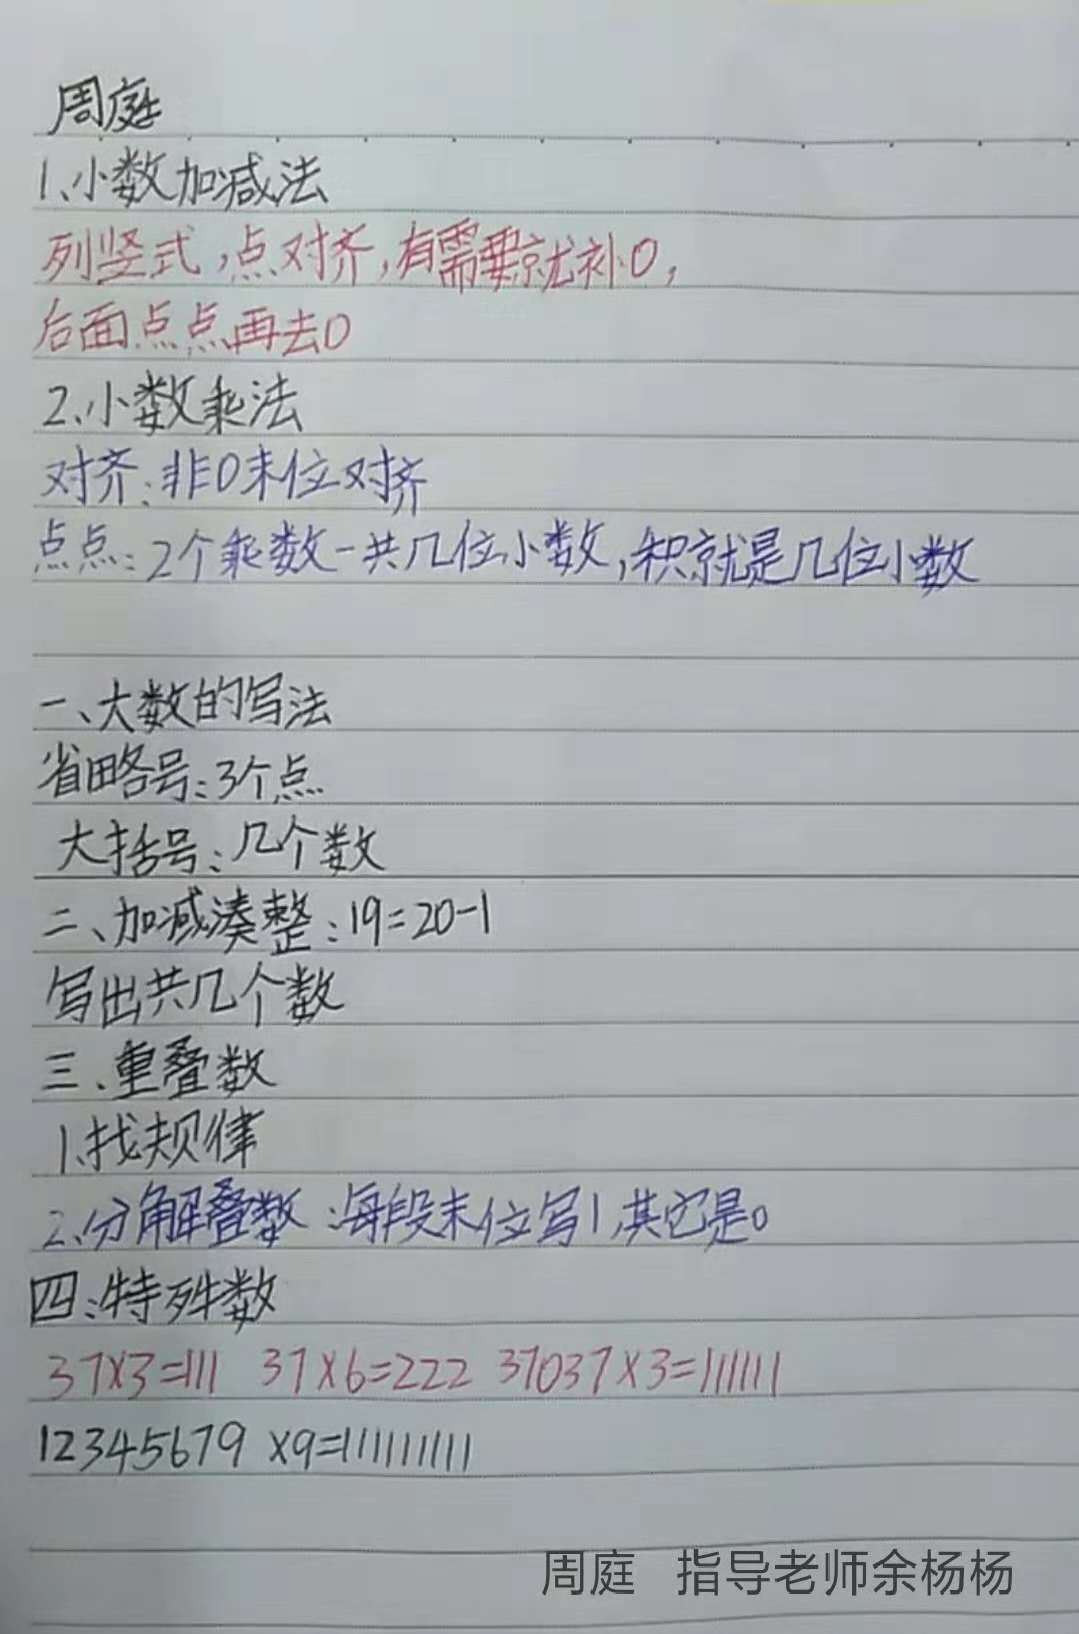 周庭
1、小数加减法
列竖式,点对齐,有需要就补0,
后面点点再去0
2、小数乘法
对齐:非0末位对齐
点点:2个乘数一共几位小数,积就是几位小数
一、大数的写法
省略号:3个点
大括号:几个数
二、加减凑整:19=20-1
写出共几个数
三、重叠数
1、找规律
2、分解叠数:每段末位写1,其它是0
四:特殊数
37×3=111 37×6=222 37037×3=111111
12345679 ×9=111111111
周庭 指导老师余杨杨